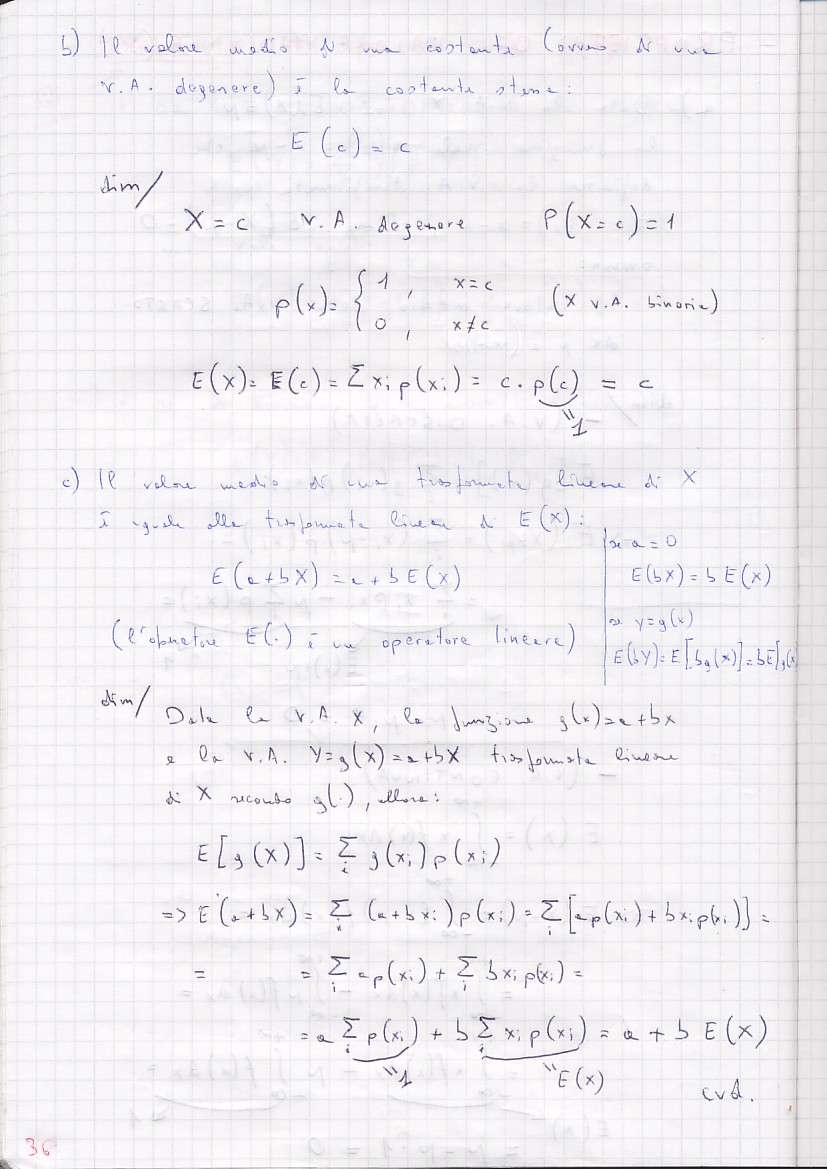 b) Il valore medio di una costante (ovvero di una
V.A. degenere) è la costante stessa:
E(c) = c
dim/
X = c V.A. degenere P(X=c) = 1
p(x) = { 1, x=c
0, x≠c (X V.A. binaria)
E(X) = E(c) = Σ xᵢ p(xᵢ) = c · p(c) = c
"1
c) Il valore medio di una trasformata lineare di X
è uguale alla trasformata lineare di E(X):
E(a+bX) = a + b E(X)
(l'operatore E(·) è un operatore lineare)
se a = 0
E(bX) = b E(X)
se y = g(x)
E(bY) = E[bg(x)] = bE[g(x
dim/ Data la V.A. X, la funzione g(x) = a+bx
e la V.A. Y = g(X) = a+bX trasformata lineare
di X secondo g(·), allora:
E[g(X)] = Σᵢ g(xᵢ) p(xᵢ)
=> E(a+bX) = Σᵢ (a+bxᵢ) p(xᵢ) = Σᵢ [a p(xᵢ) + bxᵢ p(xᵢ)] =
= = Σᵢ a p(xᵢ) + Σᵢ bxᵢ p(xᵢ) =
= a Σᵢ p(xᵢ) + b Σᵢ xᵢ p(xᵢ) = a + b E(X)
"1 "E(X)
cvd.
36